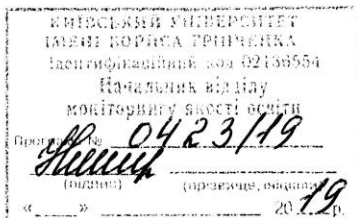 КИЇВСЬКИЙ УНІВЕРСИТЕТ
ІМЕНІ БОРИСА ГРІНЧЕНКА
Ідентифікаційний код 02136554
Начальник відділу
моніторингу якості освіти
Програма № 0423/19
(підпис) (прізвище, ініціали)
« » 2019 р.